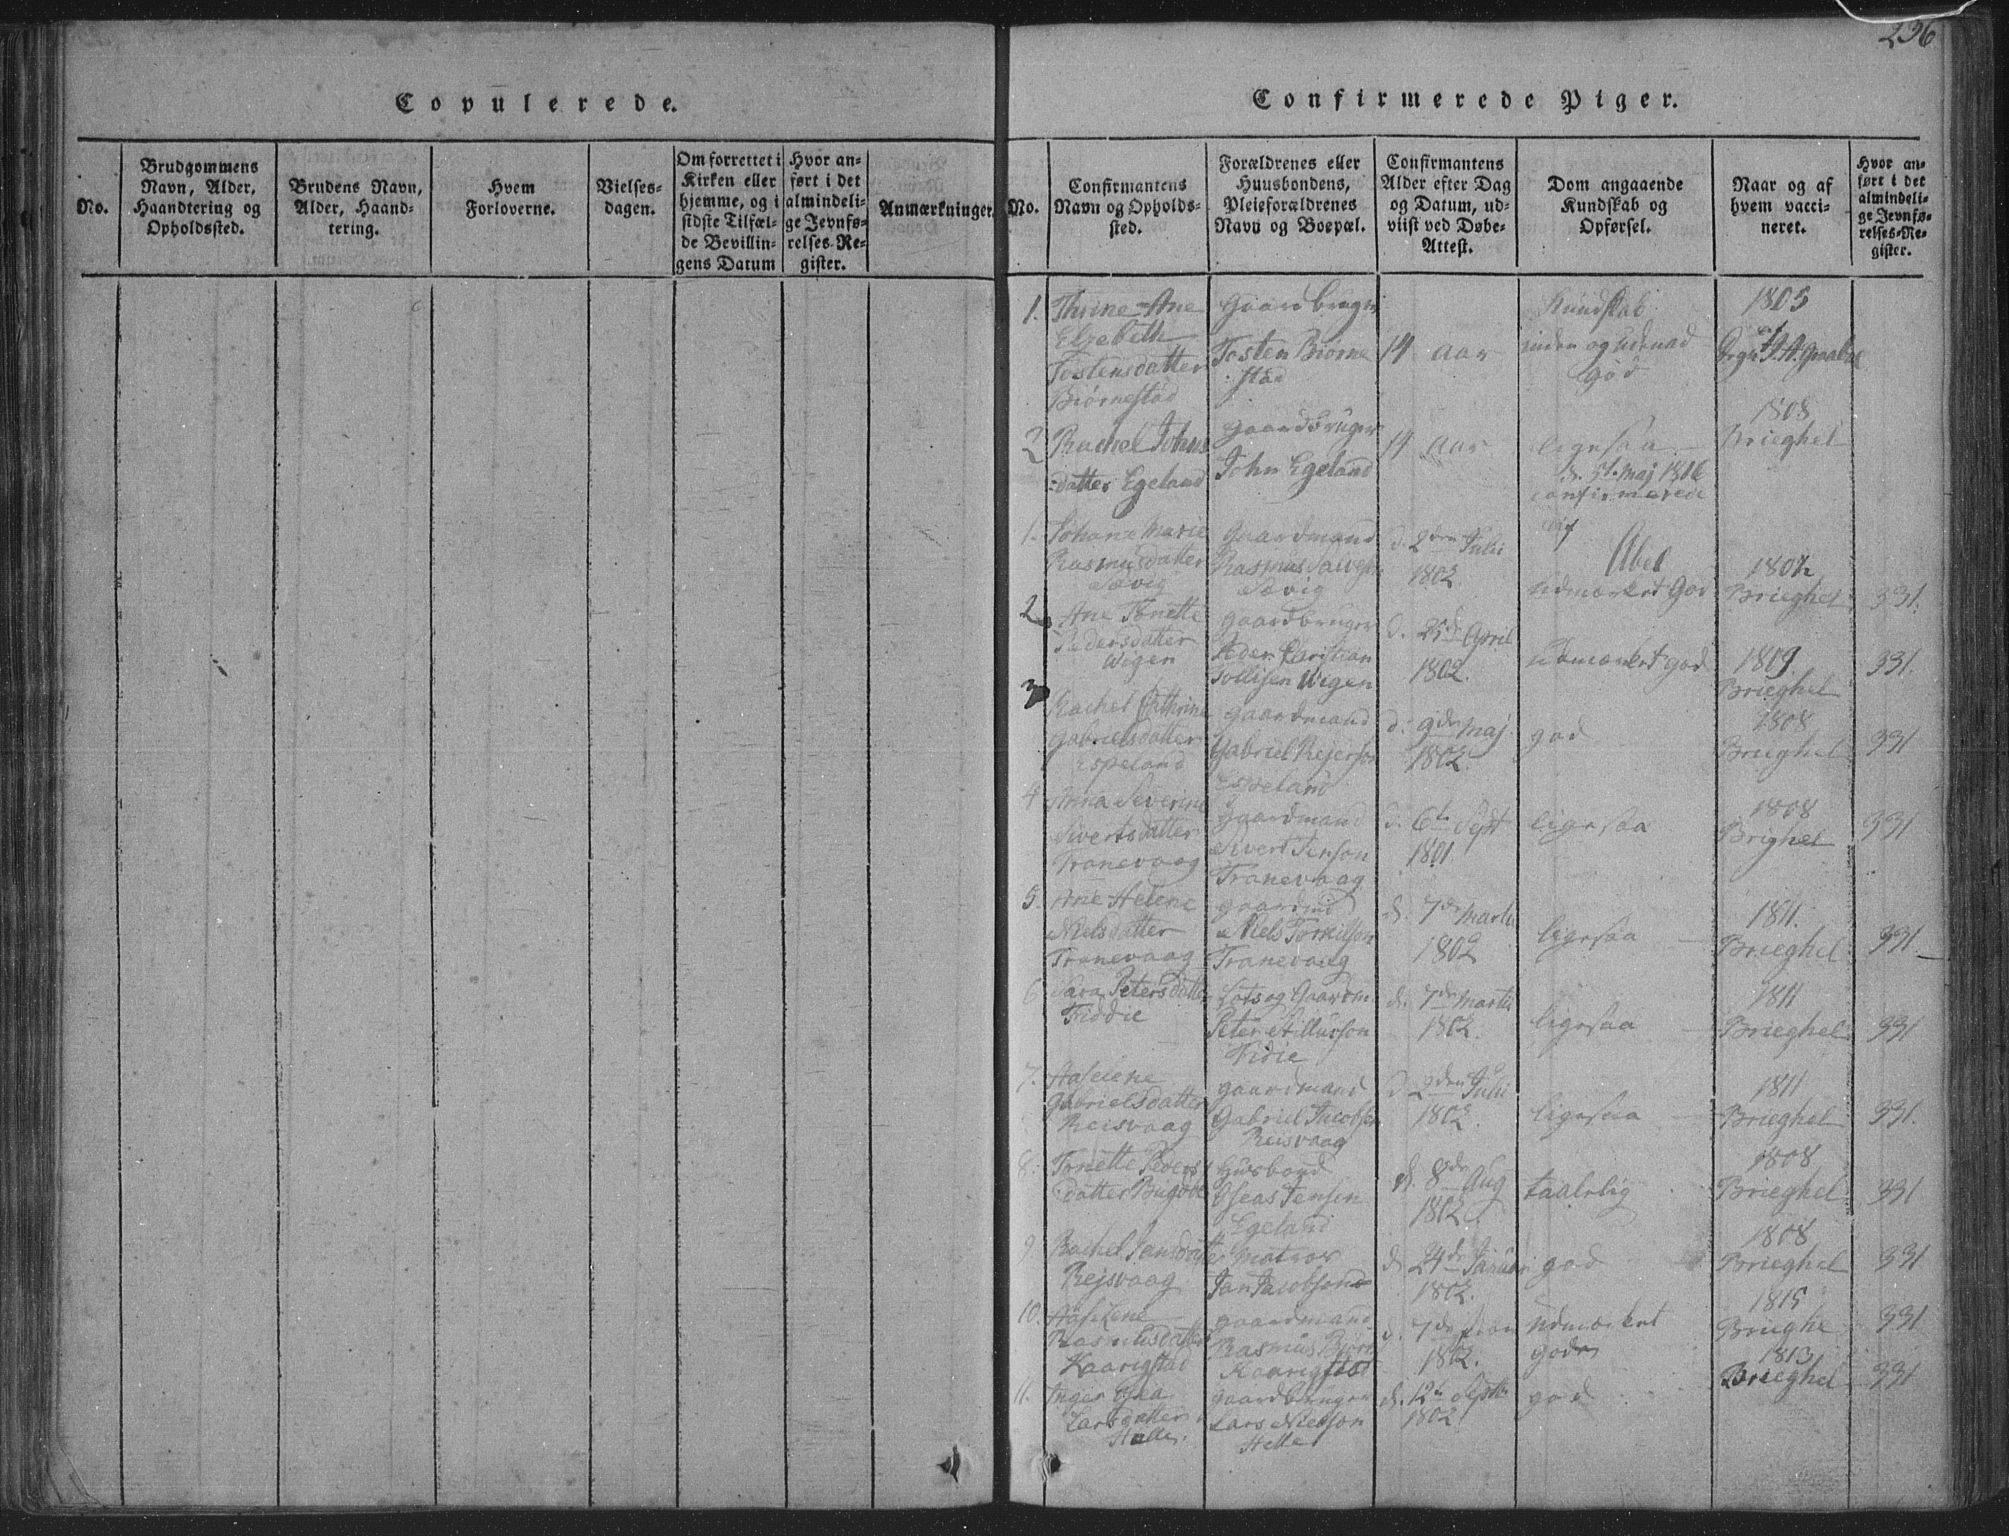 236
Copulerede.
No.
Brudgommens
Navn, Alder,
Haandtering og
Opholdssted.
Brudens Navn,
Alder, Haand-
tering.
Hvem
Forloverne.
Vielses-
dagen.
Om forrettet i
Kirken eller
hjemme, og i
sidste Tilfæl-
de Bevillin-
gens Datum
Hvor an-
ført i det
almindeli-
ge Jevnfø-
relses-Re-
gister.
Anmærkninger.
Confirmerede Piger.
No.
Confirmantens
Navn og Opholds-
sted.
Forældrenes eller
Huusbondens,
Pleieforældrenes
Navn og Boepæl.
Confirmantens
Alder efter Dag
og Datum, ud-
viist ved Døbe-
Attest.
Dom angaaende
Kundskab og
Opførsel.
Naar og af
hvem vacci-
neret.
Hvor an-
ført i det
almindeli-
ge Jevnfø-
relses-Re-
gister.
1.
Thrine-Ane
Elzebeth
Tostensdatter
Biørnestad
Gaardbruger
Tosten Biørne
stad
14 aar
Kundskab
inden og udenad
god
1805
af
2
Rachel Johns
datter Egeland
gaardbruger
John Egeland
14 aar
ligesaa
1808
Brieghel
d. 5t. Maj 1816
confirmerede
af
Abel
1.
Johane Marie
Rasmusdatter
Sævig
Gaardmand
Rasmus Salvesen
Sævig
d. 2den Julii
1802.
udmærket god
1807
Brieghel
331.
2
Ane Tonette
Pedersdatter
Wigen
gaardbruger
Peder Christian
Tollisen Wigen
d. 25de April
1802.
udmærket god
1809
Brieghel
331.
3
Rachel Cathrine
Gabrielsdatter
Espeland
gaardmand
Gabriel Rejerson
Espeland
d. 9de Maj
1802.
god
1808
Brieghel
331
4
Anna Severine
Sivertsdatter
Tranevaag
gaardmand
Sivert Jenson
Tranevaag
d. 6te Sept
1801
ligesaa
1808
Brighel
331
5.
Ane Helene
Nielsdatter
Tranevaag
gaardmd
Niels Tornilson
Tranevaag
d. 7de Martii
1802
ligesaa
1811.
Brieghel
331
6
Sara Petersdatter
Fiddie
Lots og Gaardm.
Peter
Fidie
d. 7de Martii
1802.
ligesaa
1811
Brieghel
331
7.
Aaselene
Gabrielsdatter
Reisvaag
gaardmand
Gabriel Jacobsen
Reisvaag
d. 2den Julii
1802.
ligesaa
1811
Brieghel
331.
8.
Tonette Peders
datter
Husbond
Oseas Jensen
Egeland
d. 8de Aug
1802
taalelig
1808
Brieghel
331
9.
Rachel Jansdatter
Rejsvaag
matros
Jan Jacobson
d. 24de Januar
1802.
god
1808
Brieghel
331
10.
Aaselene
Rasmusdatter
Kaarigstad
gaardmand
Rasmus Biørn
Kaarigstad
d. 7de
1802.
udmærket
gode
1815
Brieghe
331
11.
Inger
Larsdatter
Helle.
gaardbruger
Lars Nielson
Helle
d. 12te Septbr
1802
god
1813
Brieghel
331